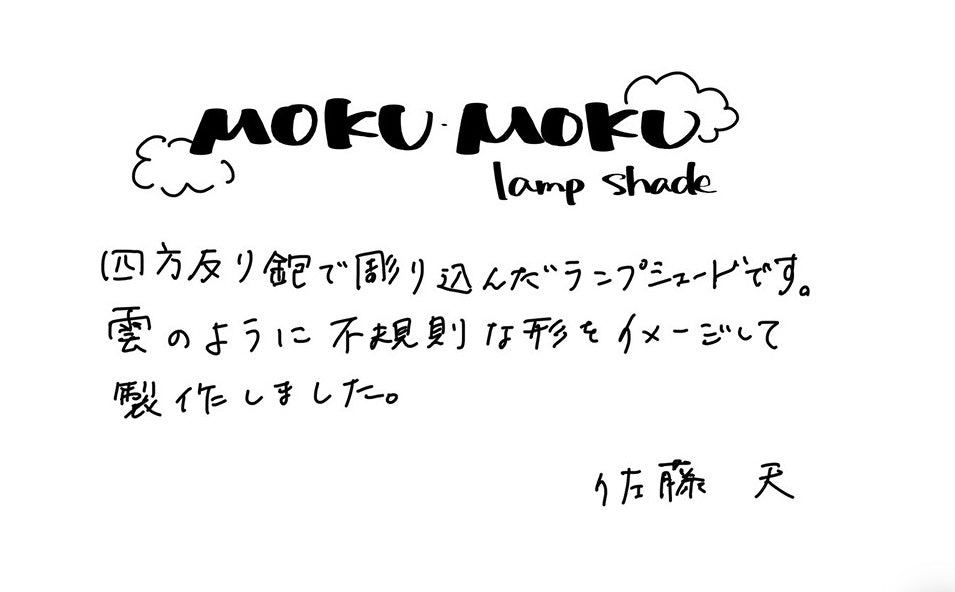 MOKU・MOKU
lamp shade
四方反り鉋で彫り込んだランプシェードです。
雲のように不規則な形をイメージして
製作しました。
佐藤 天